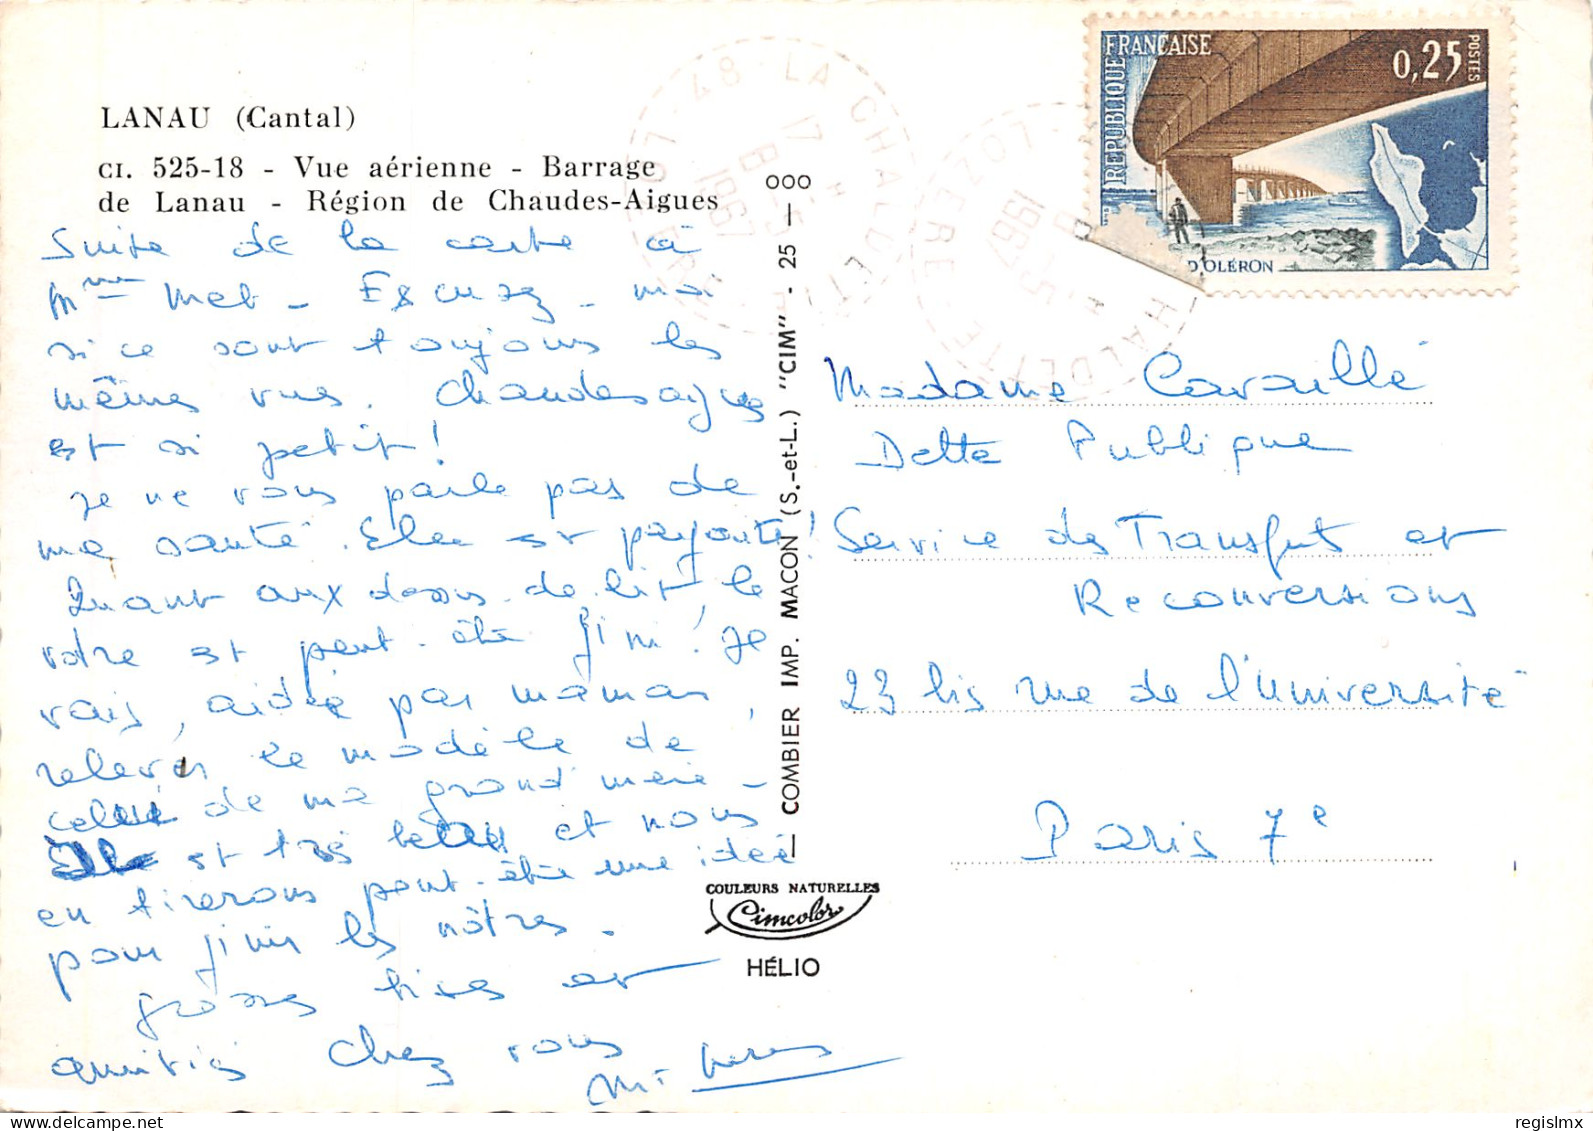 LANAU (Cantal)
CI. 525-18 - Vue aérienne - Barrage
de Lanau - Région de Chaudes-Aigues
Suite de la carte à
Mme Met - Excusez - moi
si ce sont toujours les
mêmes vues. Chaudesaigues
est si petit!
Je ne vous parle pas de
ma santé. Elle est
Quant aux dessus-de-lit, le
votre est peut-être fini! Je
vais, aidée par maman,
relever le modèle de
celui de ma grand'mère -
Elle est très belle et nous
en tirerons peut-être une idée
pour finir les nôtres.
grosses bises et
amitiés chez vous
COMBIER IMP. MACON (S.-et-L.) "CIM" - 25 - 000
COULEURS NATURELLES
Cimcolor
HÉLIO
RÉPUBLIQUE FRANÇAISE
0,25
POSTES
D'OLÉRON
48 LA CHALDETTE
LOZERE
17 H
8-5
1967
LOZERE
8-5
1967
CHALDETTE
Madame Cavaillé
Dette Publique
Service des Transferts et
Reconversions
23 bis rue de l'Université
Paris 7e
regislmx